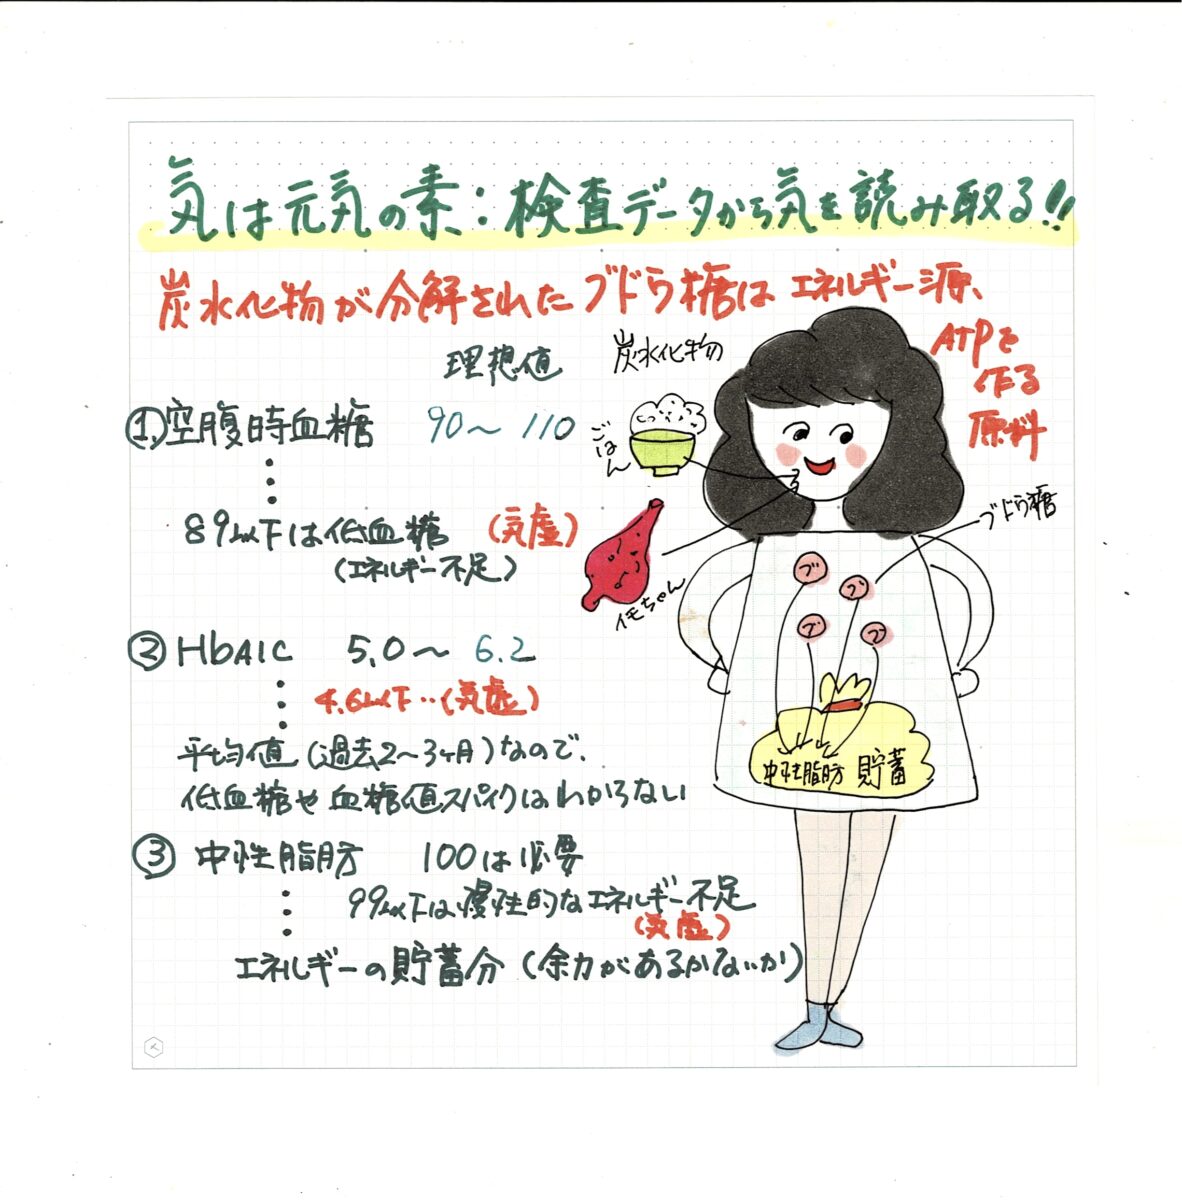 気は元気の素：検査データから気を読み取る!!
炭水化物が分解されたブドウ糖はエネルギー源、
ATPを
作る
原料
理想値
炭水化物
①空腹時血糖 90〜110
ごはん
89以下は低血糖 (気虚)
(エネルギー不足)
イモちゃん
ブドウ糖
ブ
ブ
ブ
ブ
② HbA1C 5.0〜6.2
4.6以下‥(気虚)
平均値(過去2〜3ヶ月)なので、
低血糖や血糖値スパイクはわからない
中性脂肪 貯蓄
③ 中性脂肪 100は必要
99以下は慢性的なエネルギー不足
(気虚)
エネルギーの貯蓄分(余力があるかないか)